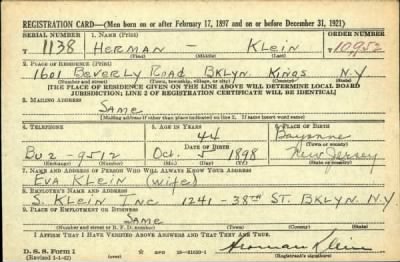 REGISTRATION CARD—(Men born on or after February 17, 1897 and on or before December 31, 1921)
SERIAL NUMBER 1. NAME (Print) ORDER NUMBER
1138 HERMAN - KLEIN 10,952
(First) (Middle) (Last)
2. PLACE OF RESIDENCE (Print)
1601 BEVERLY ROAD BKLYN KINGS N.Y
(Number and street) (Town, township, village, or city) (County) (State)
[THE PLACE OF RESIDENCE GIVEN ON THE LINE ABOVE WILL DETERMINE LOCAL BOARD
JURISDICTION; LINE 2 OF REGISTRATION CERTIFICATE WILL BE IDENTICAL]
3. MAILING ADDRESS
SAME
[Mailing address if other than place indicated on line 2. If same insert word same]
4. TELEPHONE 5. AGE IN YEARS 6. PLACE OF BIRTH
44 Bayonne
DATE OF BIRTH (Town or county)
BU 2-9512 Oct. 5 1898 New Jersey
(Exchange) (Number) (Mo.) (Day) (Yr.) (State or country)
7. NAME AND ADDRESS OF PERSON WHO WILL ALWAYS KNOW YOUR ADDRESS
EVA KLEIN (wife)
8. EMPLOYER'S NAME AND ADDRESS
S. KLEIN INC 1241-38TH ST. BKLYN. N.Y
9. PLACE OF EMPLOYMENT OR BUSINESS
SAME
(Number and street or R. F. D. number) (Town) (County) (State)
I AFFIRM THAT I HAVE VERIFIED ABOVE ANSWERS AND THAT THEY ARE TRUE.
D. S. S. Form 1
(Revised 1-1-42) (over) Herman Klein
(Registrant's signature)